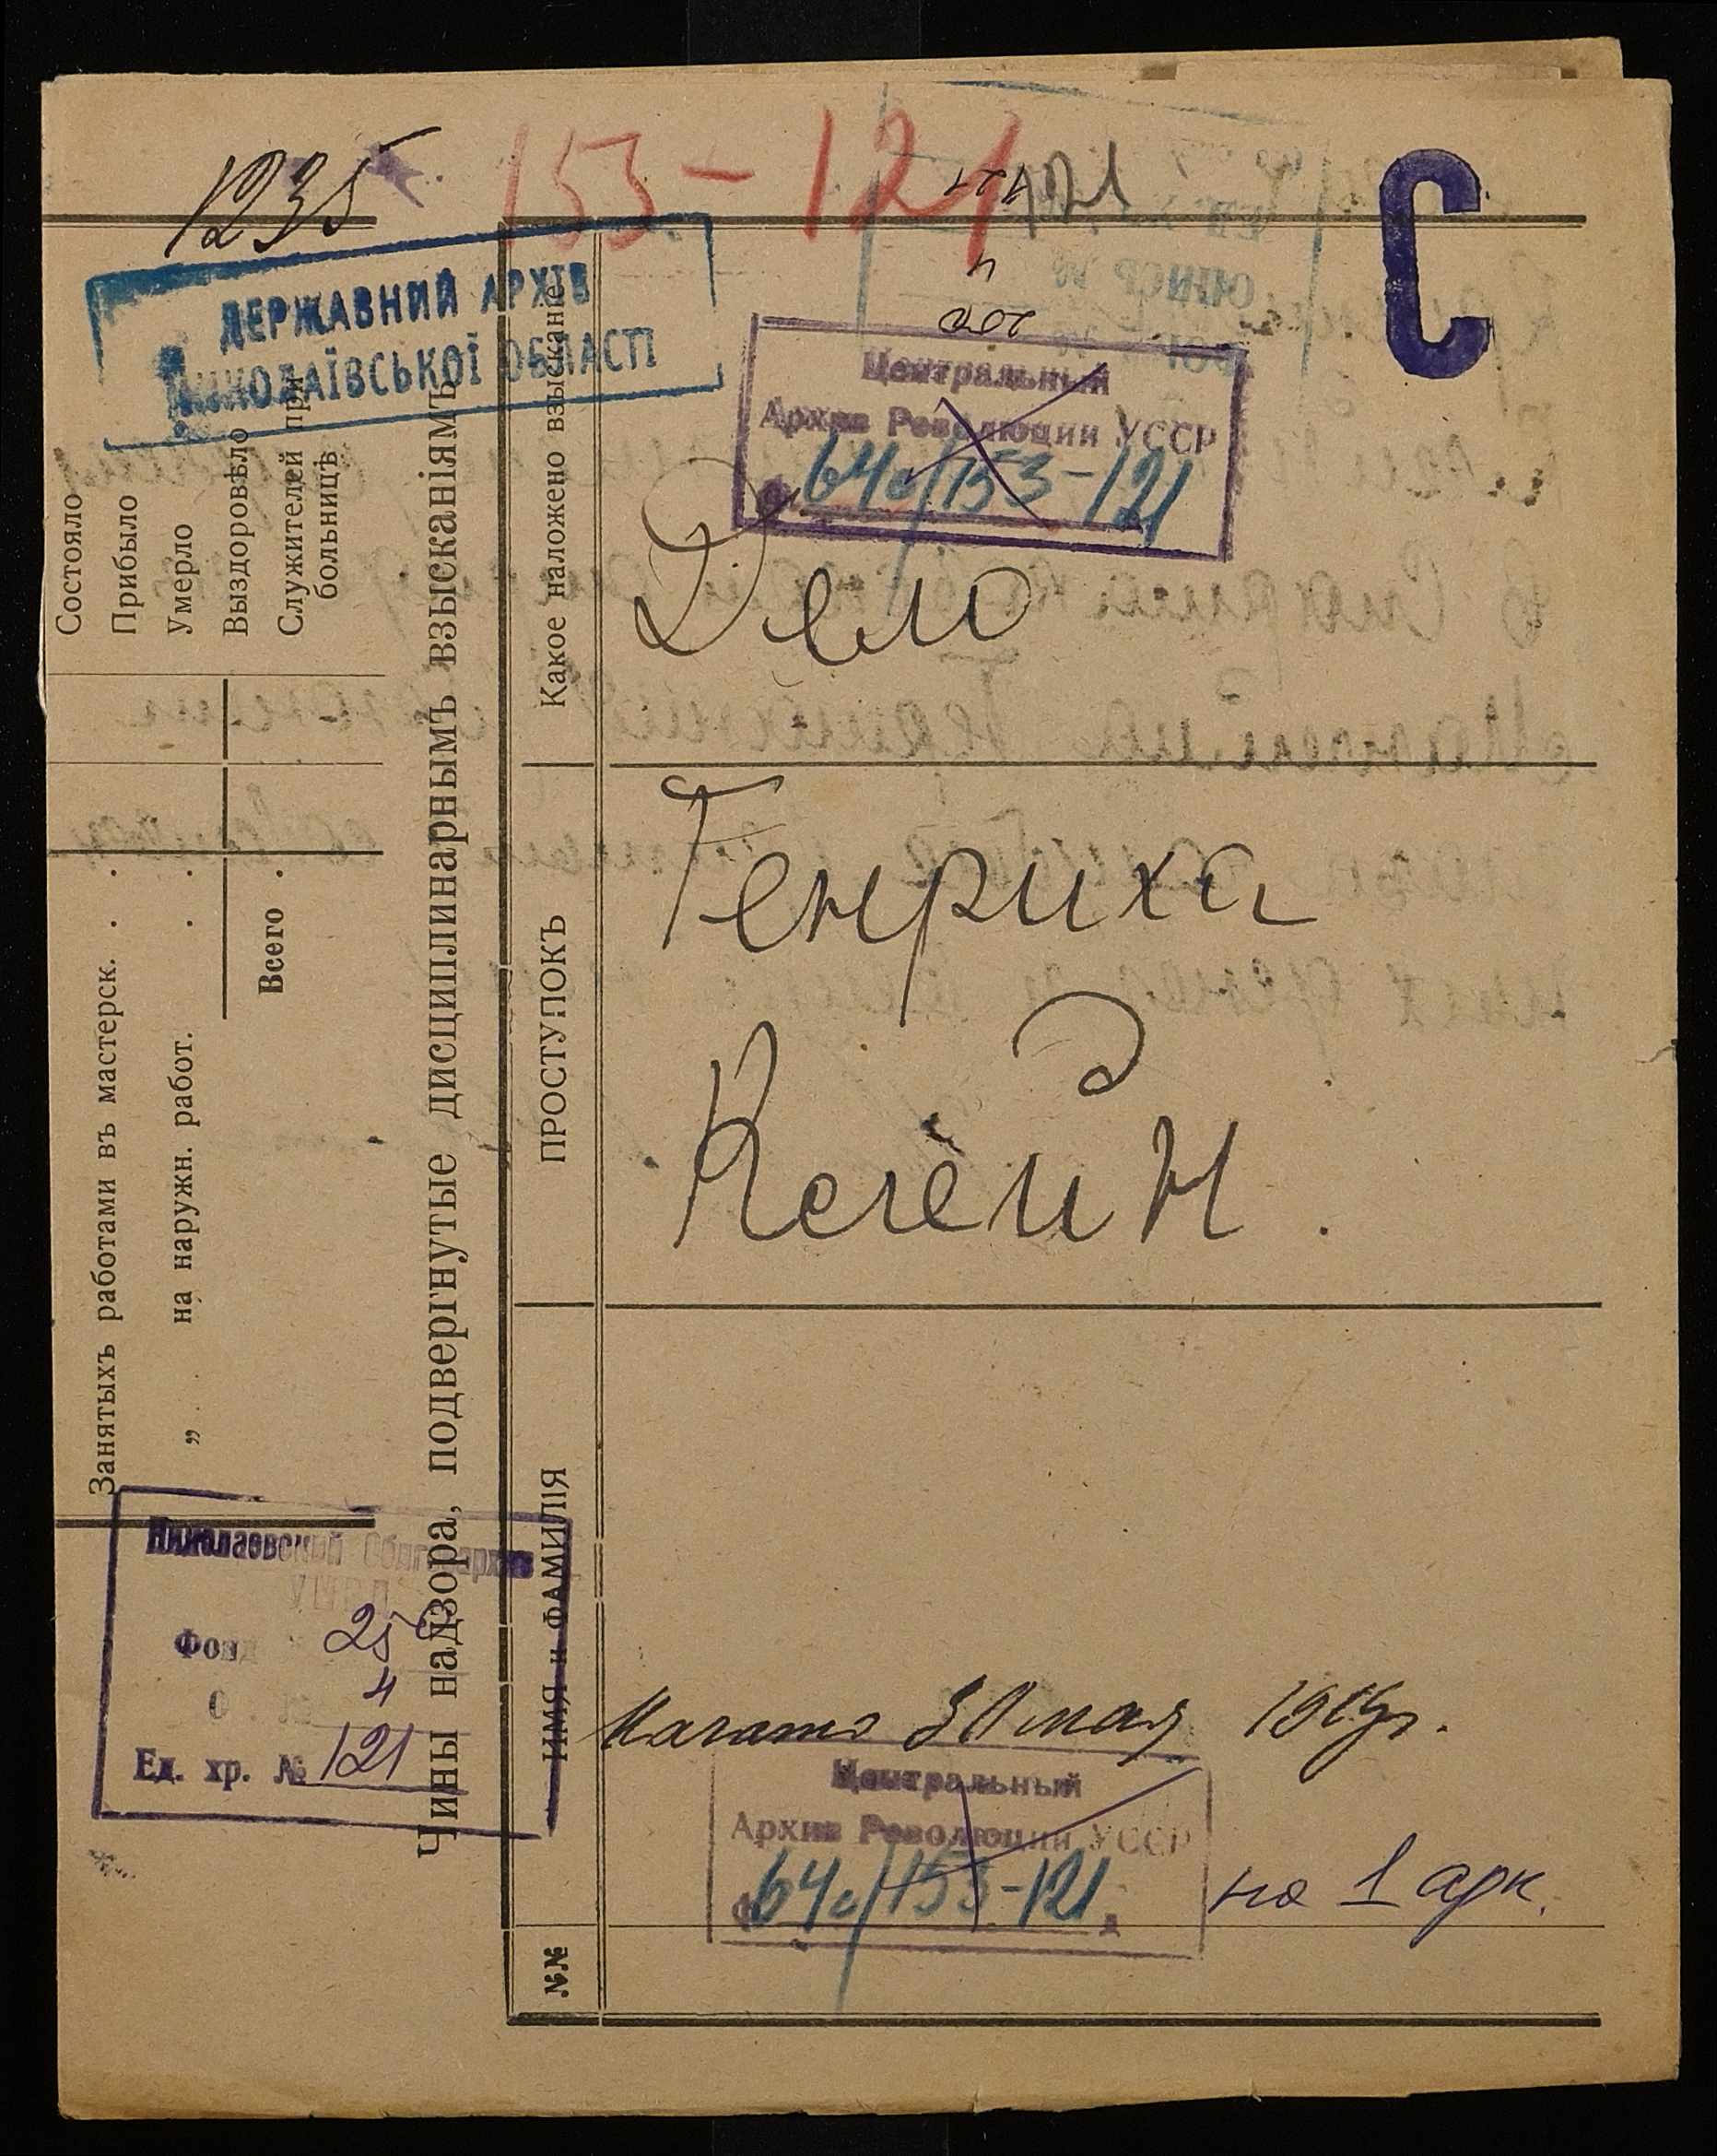 1235
153-121
С
ДЕРЖАВНИЙ АРХІВ
МИКОЛАЇВСЬКОЇ ОБЛАСТІ
Центральный
Архив Революции УССР
64с/153-121
Дело
Генриха
Начато 30 мая 1919г.
Центральный
Архив Революции УССР
64с/153-121
на 1 арк.
Николаевский Облгосархив
Фонд
4
Ед. хр. № 121
Состояло
Прибыло
Умерло
Выздоровѣло
Служителей при
больницѣ
Занятыхъ работами въ мастерск. . .
„ на наружн. работ. . .
Всего .
Чины надзора, подвергнутые дисциплинарнымъ взысканіямъ
№№
ИМЯ и ФАМИЛІЯ
ПРОСТУПОКЪ
Какое наложено взысканіе